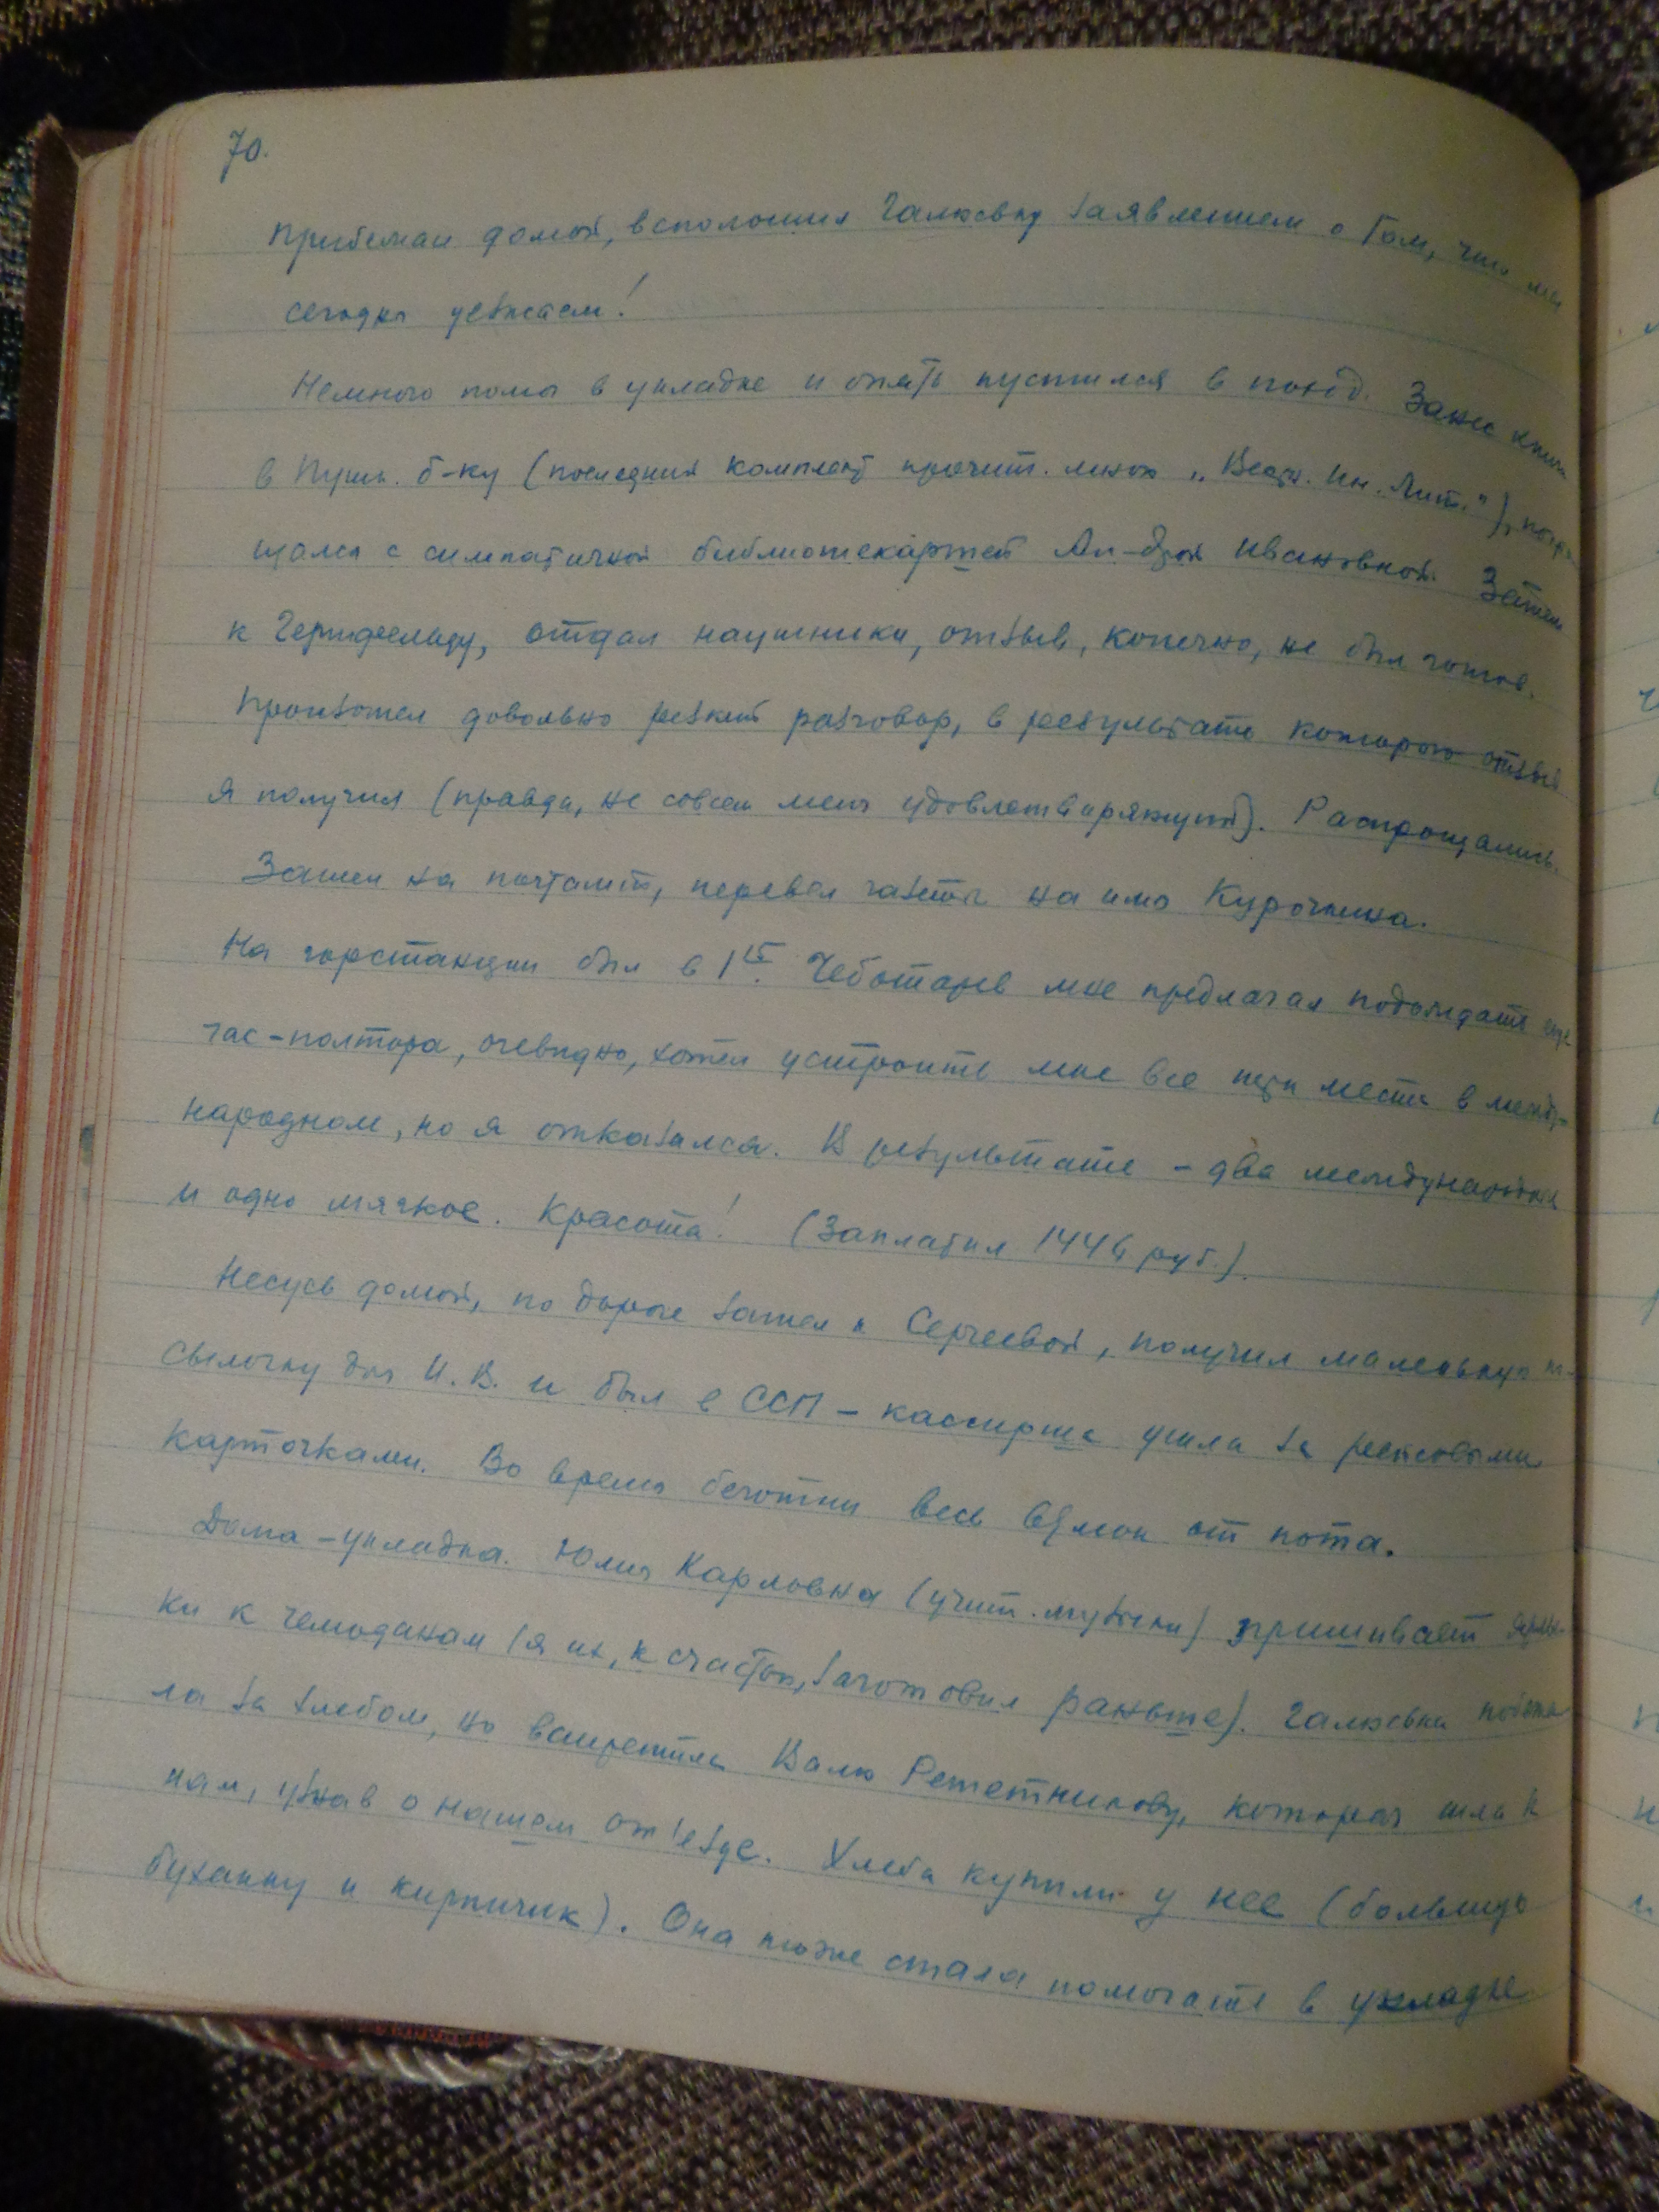 70.
Прибежал домой, всполошил Галюсвку заявлением о том, что мы
сегодня уезжаем!
Немного помог в укладке и опять пустился в поход. Занес книги
в Пушк. б-ку (последний комплект прочит. мною „Вестн. Ин. Лит."), попро-
щался с симпатичной библиотекаршей Ал-дрой Ивановной. Затем
к Гершфельду, отдал наушники, отзыв, конечно, не был готов.
Произошел довольно резкий разговор, в результате которого отзыв
я получил (правда, не совсем меня удовлетворяющий). Распрощались.
Зашел на почтамт, перевел газеты на имя Курочкина.
На горстанции был в 1 15. Чеботарев мне предлагал подождать еще
час-полтора, очевидно, хотел устроить мне все три места в между-
народном, но я отказался. В результате – два международных
и одно мягкое. Красота! (Заплатил 1446 руб.).
Несусь домой, по дороге зашел к Сергеевой, получил маленькую по-
сылочку для И. В. и был в ССП – кассирша ушла за рейсовыми
карточками. Во время беготни весь взмок от пота.
Дома – укладка. Юлия Карловна (учит. музыки) пришивает ярлы-
ки к чемоданам (я их, к счастью, заготовил раньше). Галюсвка побежа-
ла за хлебом, но встретила Валю Решетникову, которая шла к
нам, узнав о нашем от'езде. Хлеба купили у нее (большую
буханку и кирпичик). Она тоже стала помогать в укладке